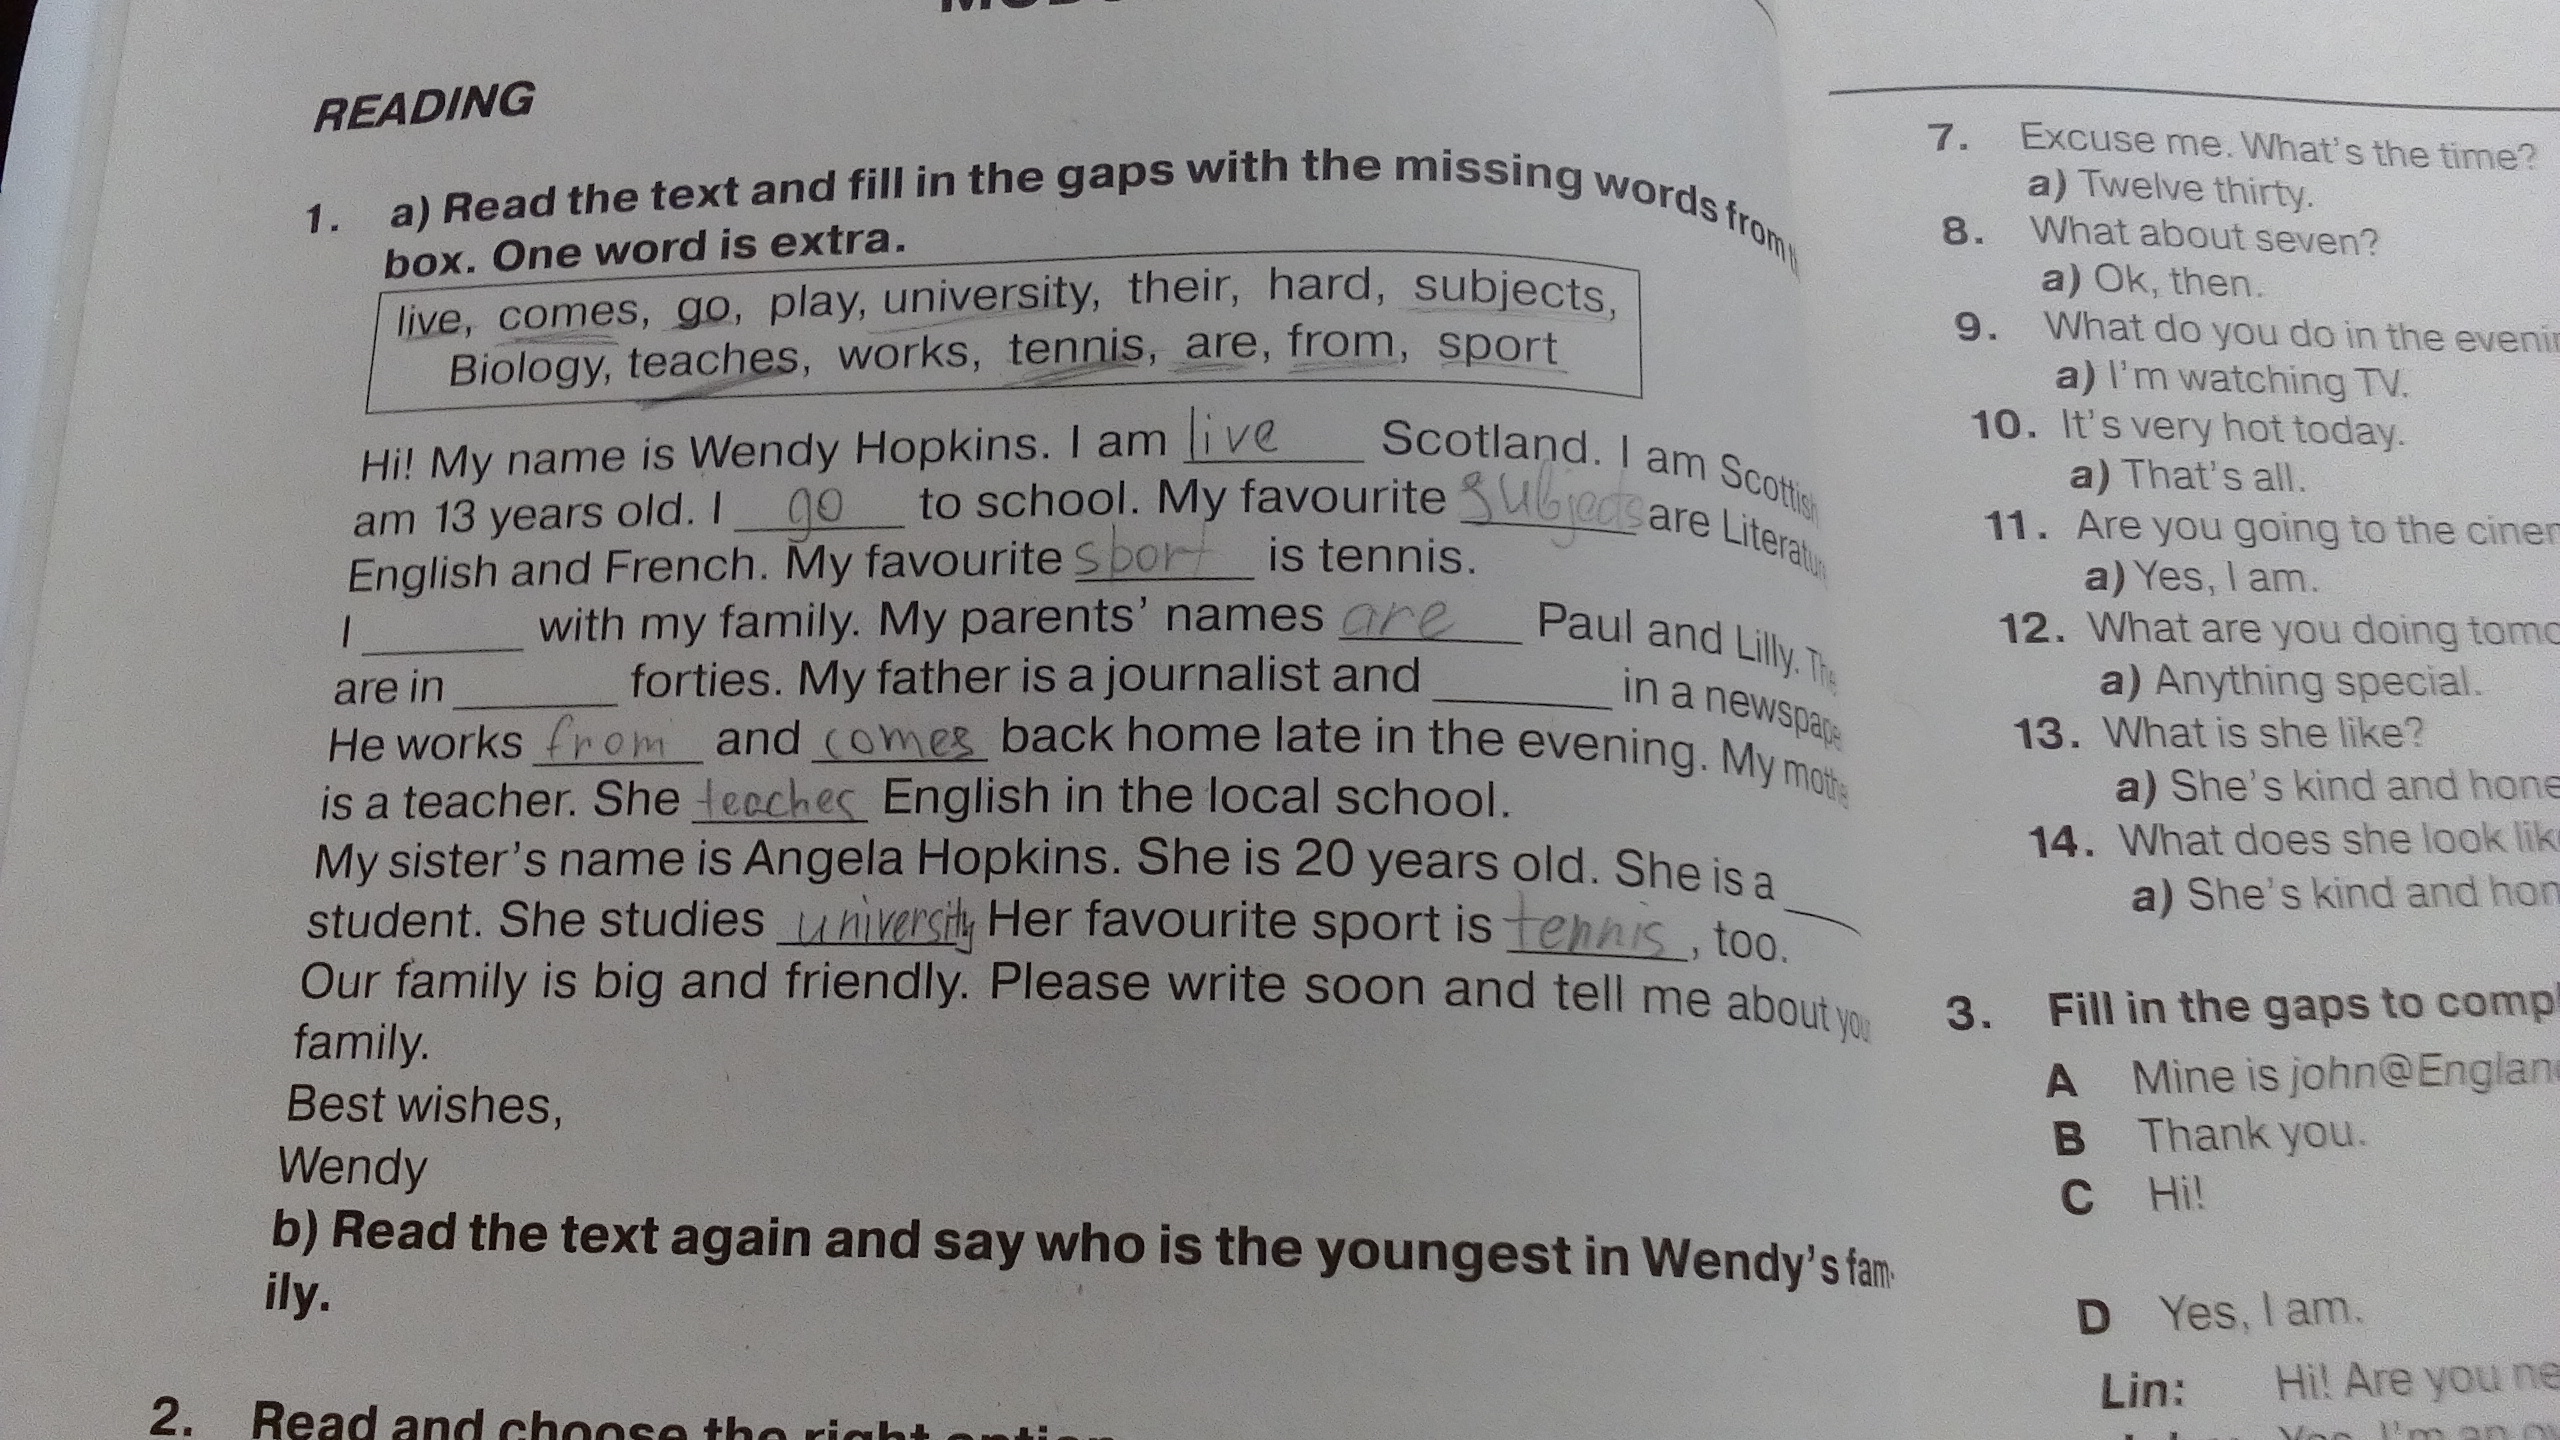 READING
1. a) Read the text and fill in the gaps with the missing words from
box. One word is extra.
live, comes, go, play, university, their, hard, subjects,
Biology, teaches, works, tennis, are, from, sport
Hi! My name is Wendy Hopkins. I am live Scotland. I am Scottish
am 13 years old. I go to school. My favourite subjects are Literatu
English and French. My favourite sport is tennis.
I ______ with my family. My parents' names are Paul and Lilly. The
are in ______ forties. My father is a journalist and ______ in a newspape
He works from and comes back home late in the evening. My mothe
is a teacher. She teaches English in the local school.
My sister's name is Angela Hopkins. She is 20 years old. She is a ______
student. She studies university Her favourite sport is tennis, too.
Our family is big and friendly. Please write soon and tell me about you
family.
Best wishes,
Wendy
b) Read the text again and say who is the youngest in Wendy's fam-
ily.
2. Read and choose the right option
7. Excuse me. What's the time?
a) Twelve thirty.
8. What about seven?
a) Ok, then.
9. What do you do in the evenin
a) I'm watching TV.
10. It's very hot today.
a) That's all.
11. Are you going to the ciner
a) Yes, I am.
12. What are you doing tomo
a) Anything special.
13. What is she like?
a) She's kind and hone
14. What does she look lik
a) She's kind and hon
3. Fill in the gaps to compl
A Mine is john@Englan
B Thank you.
C Hi!
D Yes, I am.
Lin: Hi! Are you ne